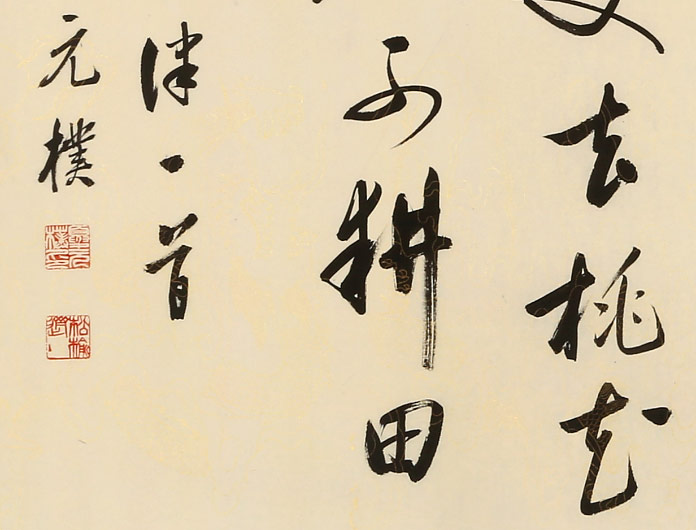 去桃花
可耕田
律一首
元樸